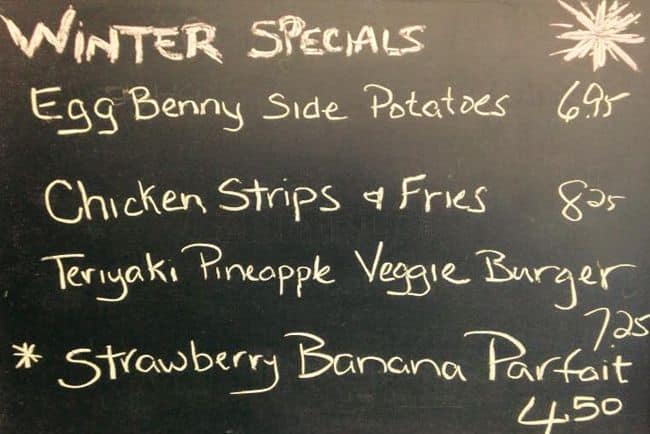 WINTER SPECIALS
Egg Benny Side Potatoes 6.95
Chicken Strips & Fries 8.25
Teriyaki Pineapple Veggie Burger
7.25
* Strawberry Banana Parfait
4.50